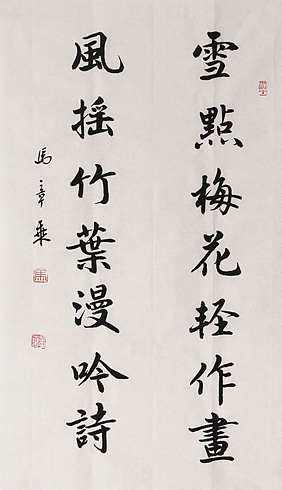 雪點梅花軽作畫
風摇竹葉漫吟詩
馬章乘